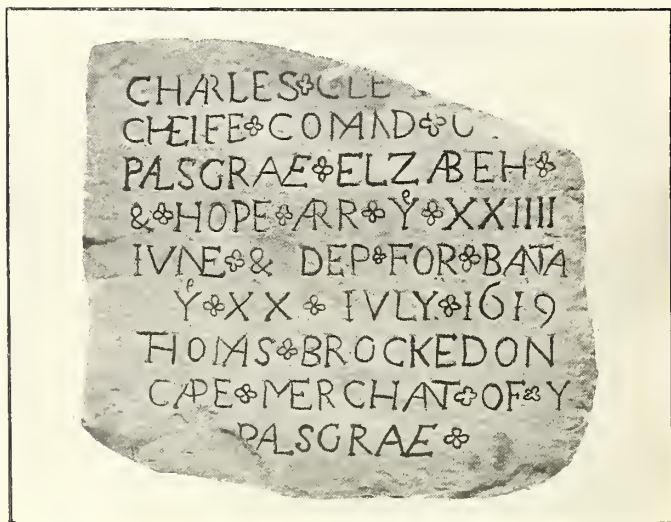 CHARLES CLE
CHEIFE COMAND
PALSGRAE ELZABEH
& HOPE ARR Yᵉ XXIIII
IVNE & DEP FOR BANTA
Yᵉ XX IVLY 1619
THOMAS BROCKEDON
CAPE MERCHANT OF Y
PALSGRAE